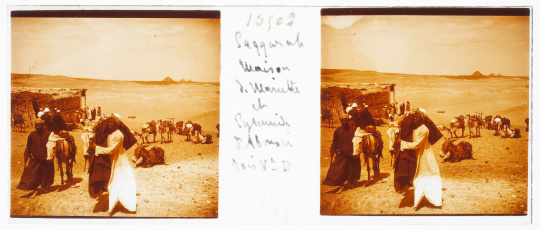 15502
Saqqarah
Maison
de Mariette
et
Pyramide
d'Abousir